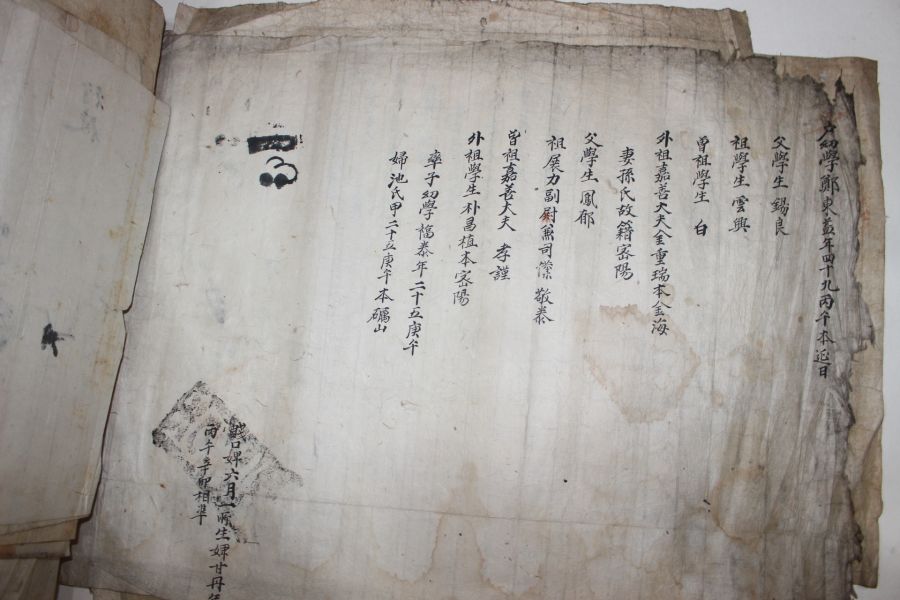 戶幼學鄭東 年四十九丙午本延日
父學生 錫良
祖學生 雲興
曾祖學生 白
外祖嘉善大夫金重瑞本金海
妻孫氏故籍密陽
父學生 鳳郁
祖展力副尉兼司僕 敬泰
曾祖嘉善大夫 孝謹
外祖學生朴昌植本密陽
率子幼學 泰年二十五庚午
婦池氏甲二十五庚午本礪山
賤口婢六月一所生婢甘丹年
丙午 卯相準